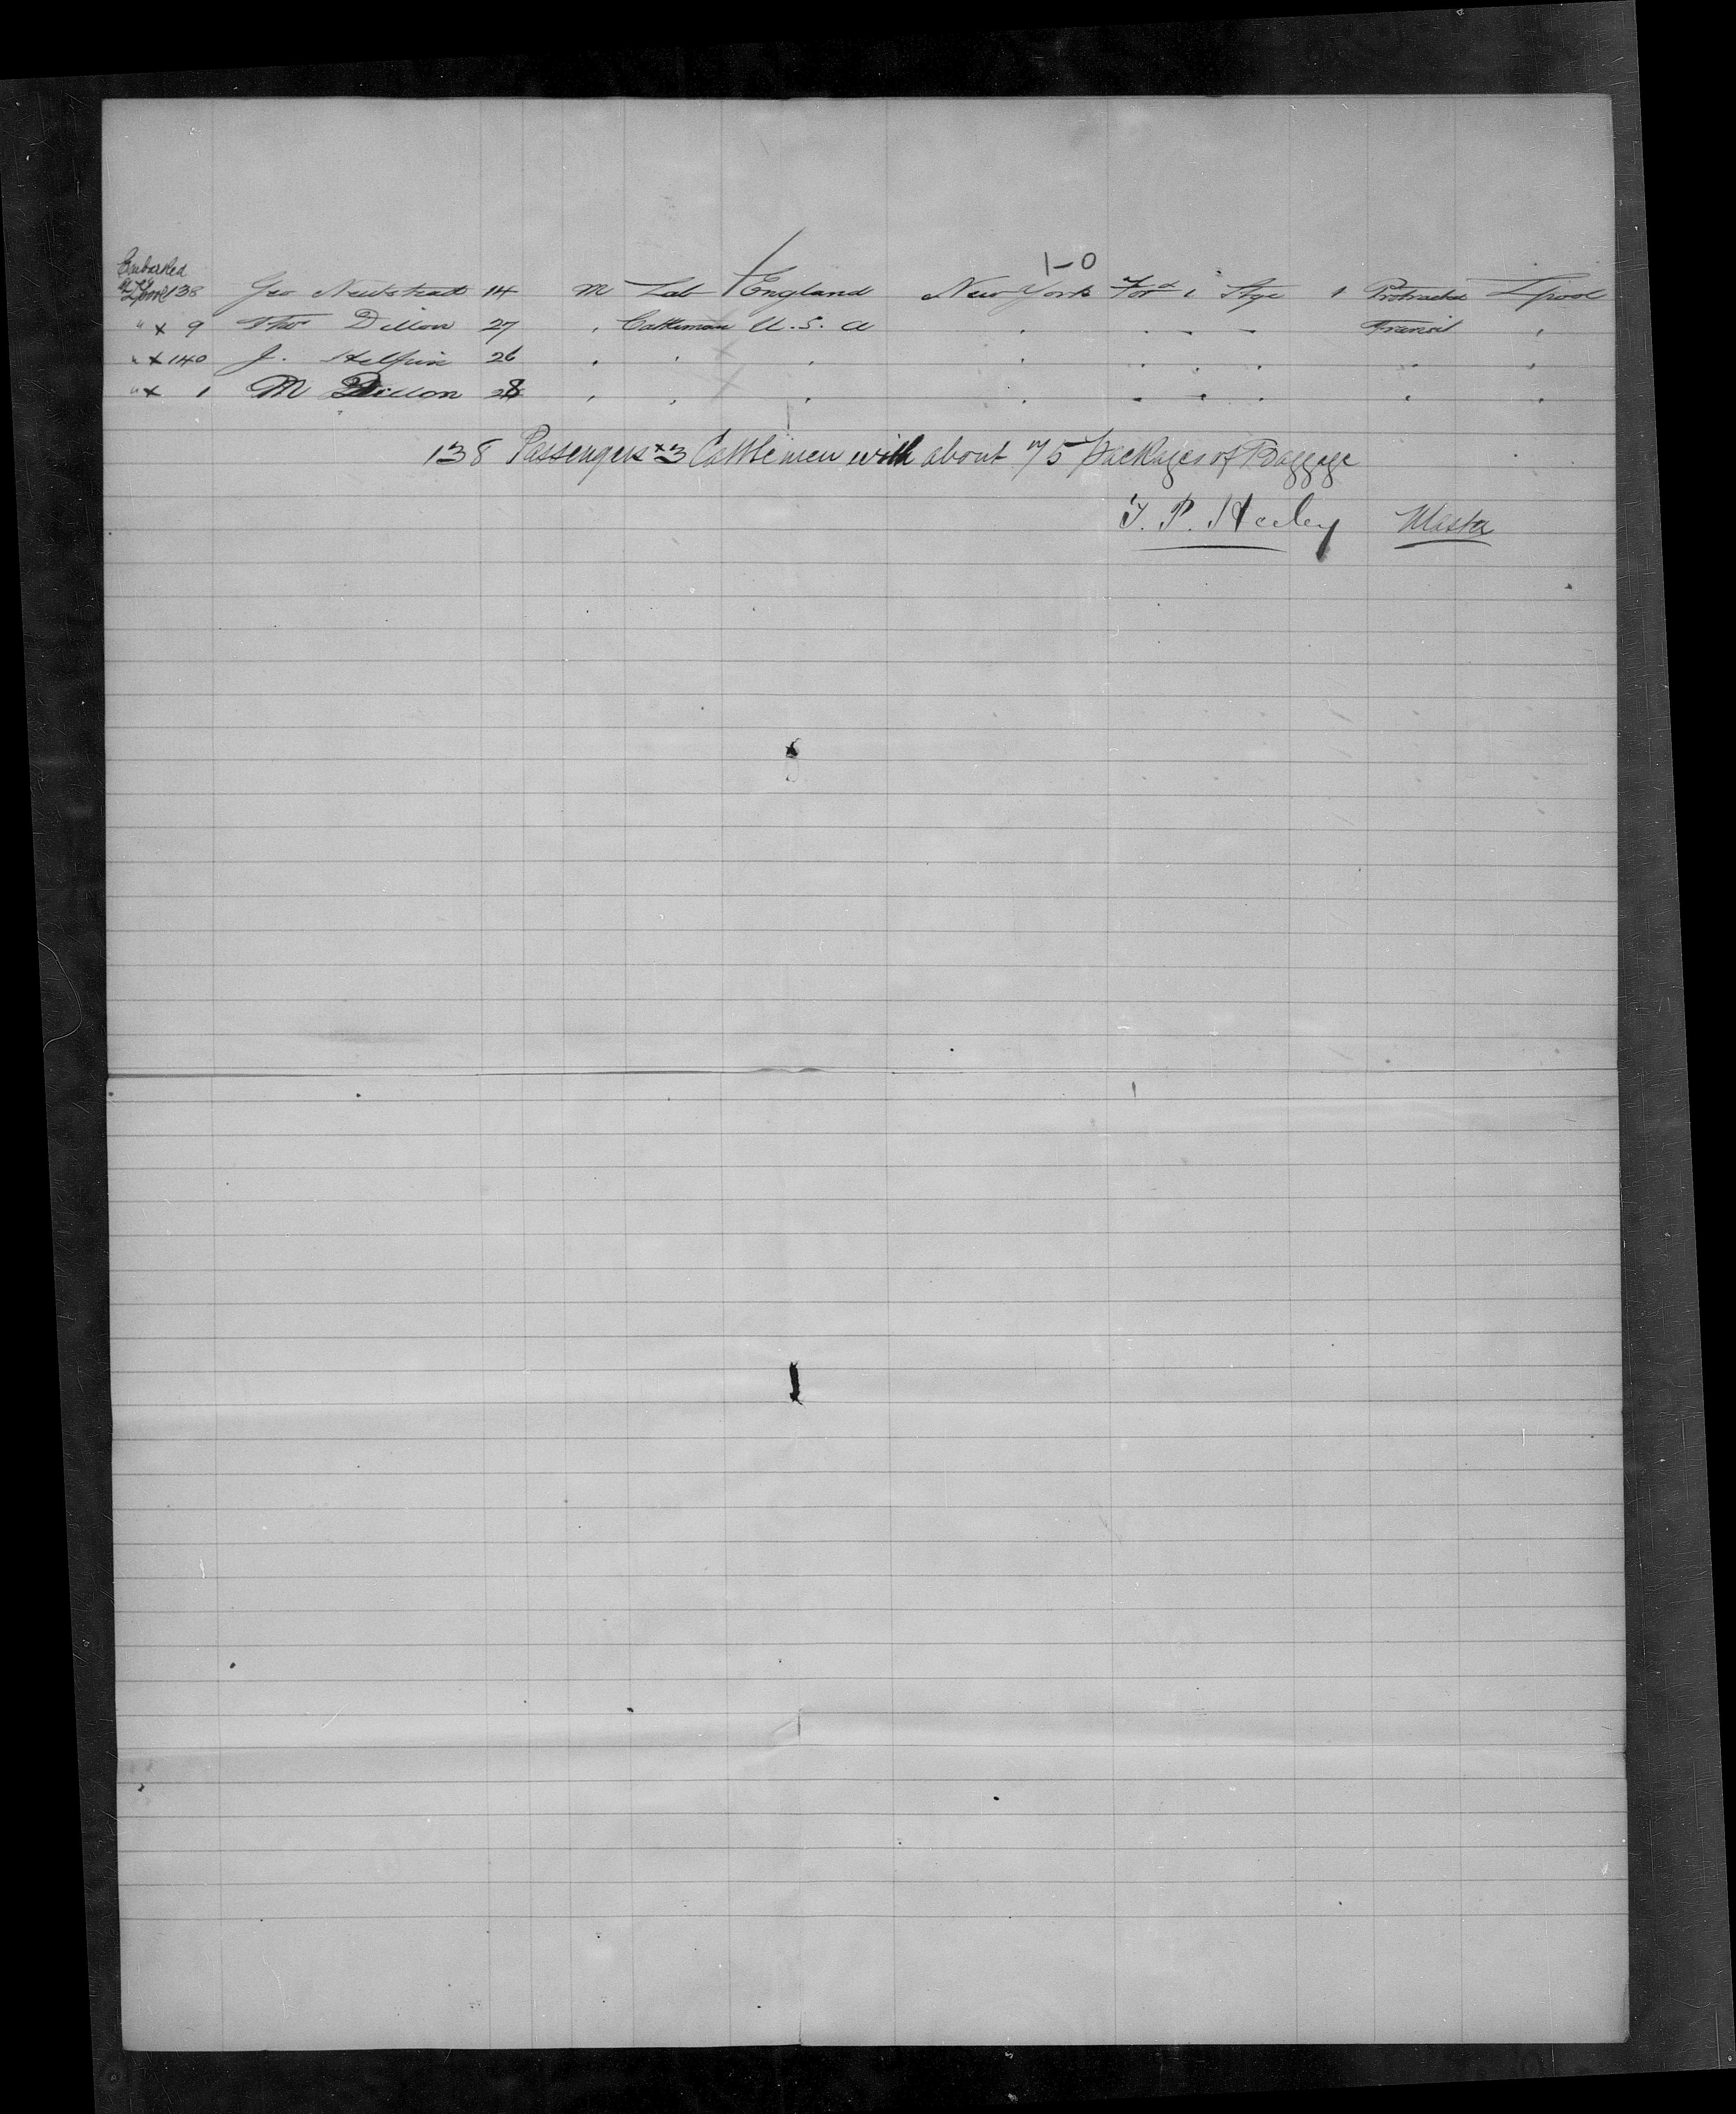 Embarked
1-0
L'pool 138 Geo Newstead 14 M Lab England New York For'd 1 Stge 1 Protracted L'pool
" x 9 Thos Dillon 27 " Cattleman U.S.A " " " " Transit "
" x 140 J. Halpin 26 " " " " " " " " "
" x 1 M Dillon 28 " " " " " " " " "
138 Passengers x 3 Cattlemen with about 75 packages of Baggage
T. P. Heeley Master